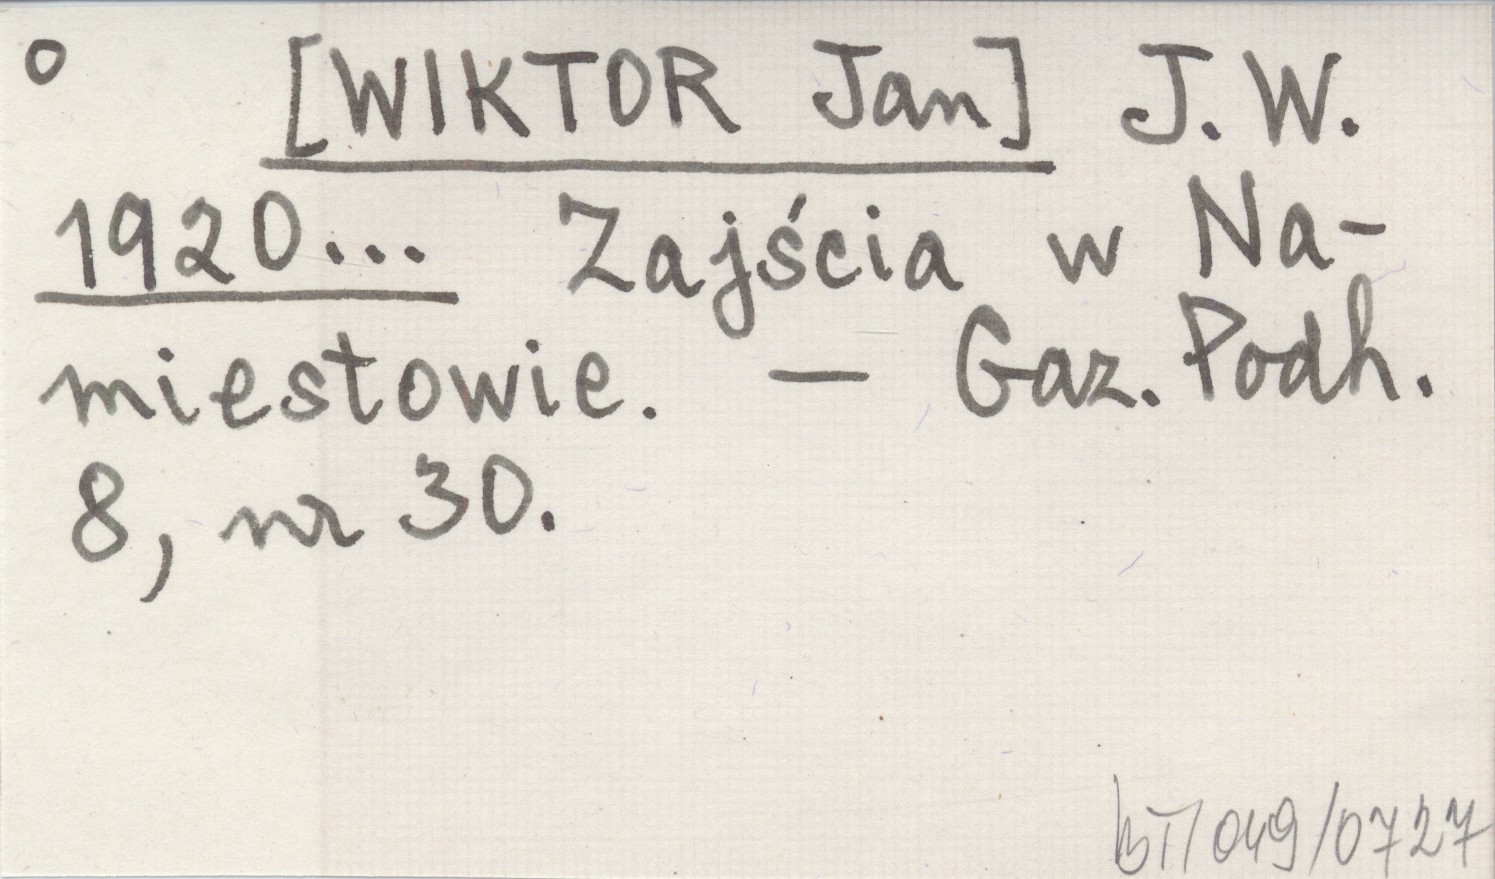 o [WIKTOR Jan] J. W.
1920... Zajścia w Na-
miestowie. — Gaz. Podh.
8, nr 30.
BT/049/0727